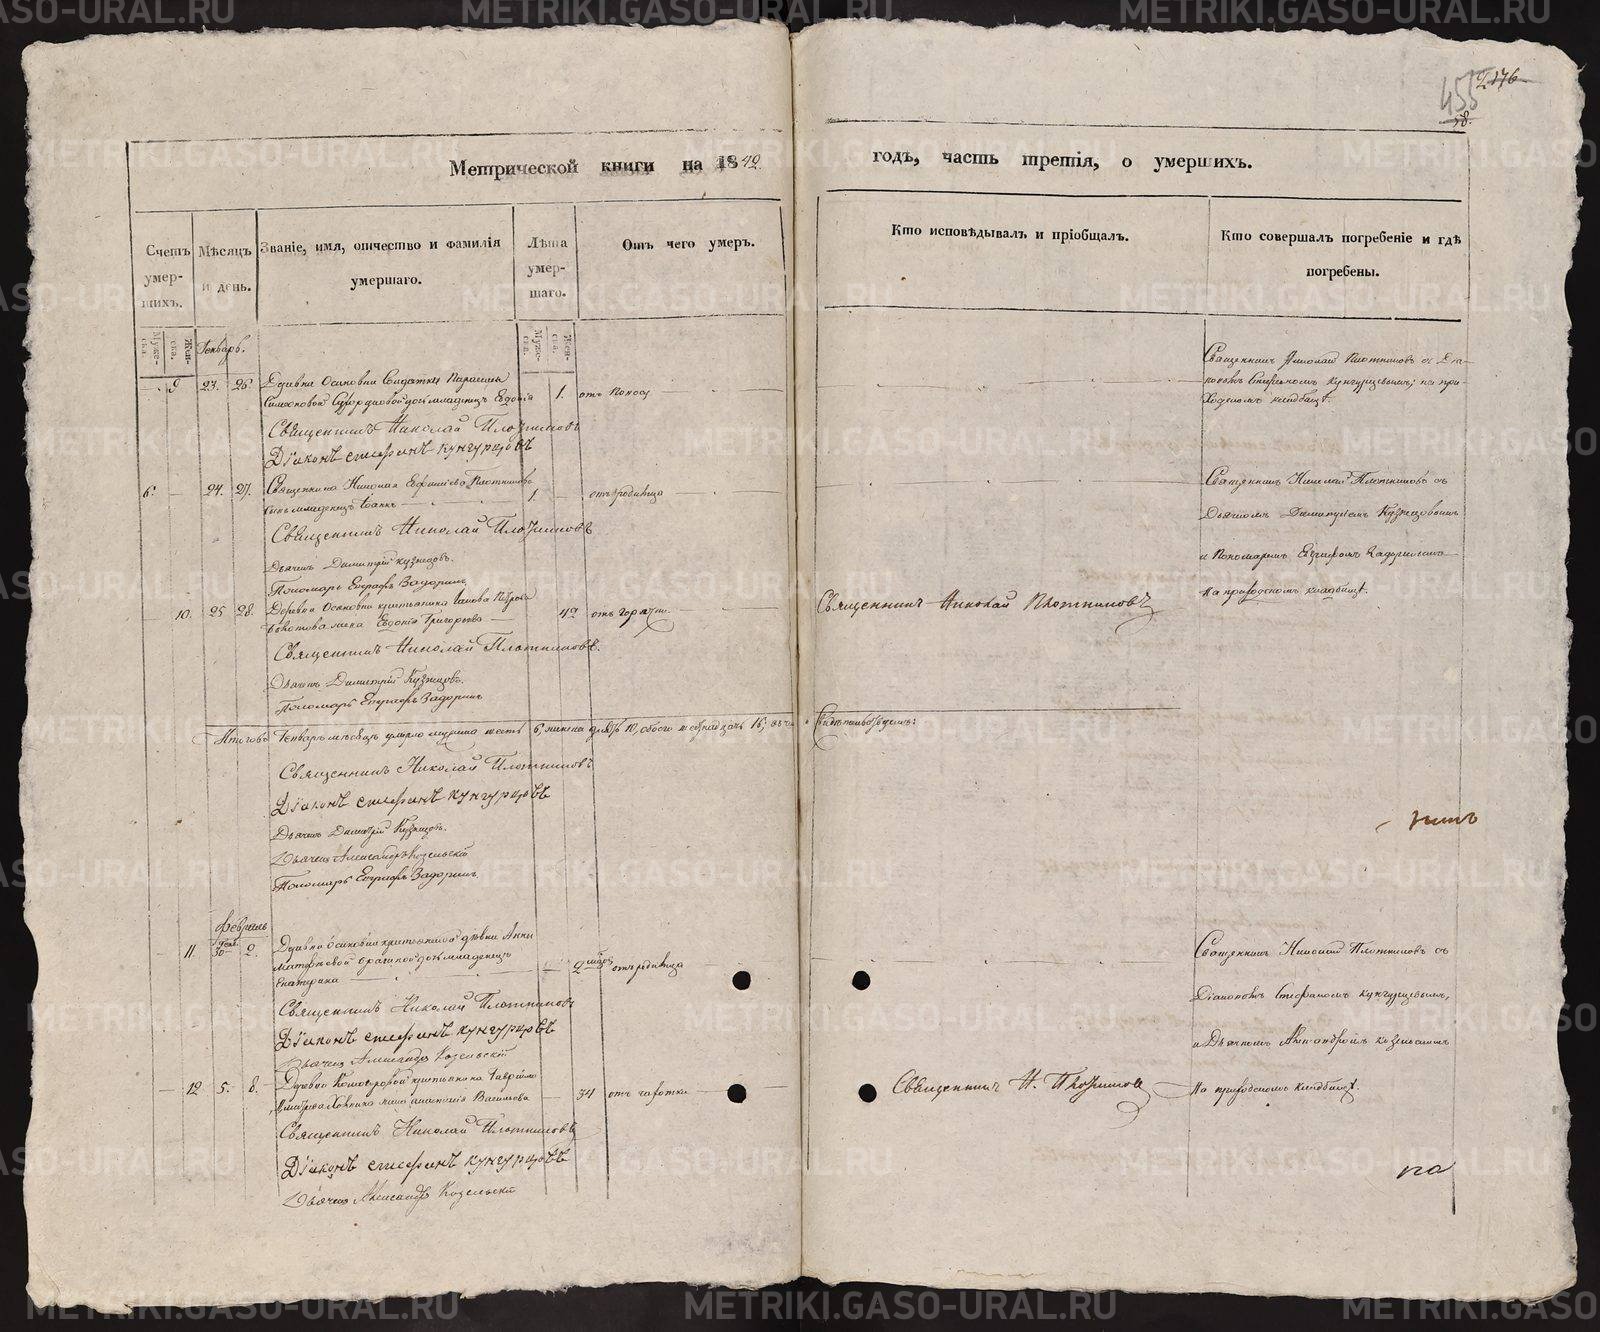 2176
455
58.
Метрической книги на 1842 годъ, часть третія, о умершихъ.
Счетъ умер-шихъ.
Мѣсяцъ и день.
Званіе, имя, отчество и фамилія умершаго.
Лѣта умер-шаго.
Отъ чего умеръ.
Кто исповѣдывалъ и пріобщалъ.
Кто совершалъ погребеніе и гдѣ погребены.
Муже-ска.
Жен-ска.
Муже-ска.
Жен-ска.
Генварь.
9 23. 26
Деревни Осиновки Солдатки Парасковьи
дочь младенецъ Евдокія 1. отъ поноса
Священникъ Николай Плотниковъ съ Діа-
кономъ Стефаномъ Кунгурцевымъ; на при-
ходскомъ кладбищѣ.
Священникъ Николай Плотниковъ
Діаконъ Стефанъ Кунгурцовъ
6. 24. 27. Священника Николая Плотникова
сынъ младенецъ Іоаннъ 1. отъ родимца
Священникъ Николай Плотниковъ съ
Дьячкомъ Димитріемъ Кузнецовымъ
и Пономаремъ Евграфомъ Задоринымъ
на приходскомъ кладбищѣ.
Священникъ Николай Плотниковъ
Дьячекъ Димитрій Кузнецовъ.
Пономарь Евграфъ Задоринъ
10. 25 28. Деревни Осиновки крестьянина
жена Евдокія Григорьева 42 отъ горячки
Священникъ Николай Плотниковъ
Священникъ Николай Плотниковъ.
Дьячекъ Димитрій Кузнецовъ.
Пономарь Евграфъ Задоринъ
Итого въ Генварѣ мѣсяцѣ умерло мужеска шесть 6, женска десять 10, обоего шестнадцать 16; въ чемъ
Свидѣтельствуемъ:
Священникъ Николай Плотниковъ
Діаконъ Стефанъ Кунгурцовъ
Дьячекъ Димитрій Кузнецовъ.
Дьячекъ Александръ Козельскій
Пономарь Евграфъ Задоринъ.
Февраль
11. Генв. 30 2. Деревни Осиновки крестьянской дѣвки Анны
дочь младенецъ
Екатерина 2 отъ родимца
Священникъ Николай Плотниковъ съ
Діакономъ Стефаномъ Кунгурцевымъ,
и Дьячкомъ Александромъ Козельскимъ
На приходскомъ кладбищѣ.
Священникъ Николай Плотниковъ
Діаконъ Стефанъ Кунгурцовъ
Дьячекъ Александръ Козельскій
12 5. 8. Деревни крестьянина Гаврійла
жена Васильева 34 отъ чахотки
Священникъ Н. Плотниковъ
Священникъ Николай Плотниковъ
Діаконъ Стефанъ Кунгурцовъ
Дьячекъ Александръ Козельскій
на
METRIKI.GASO-URAL.RU